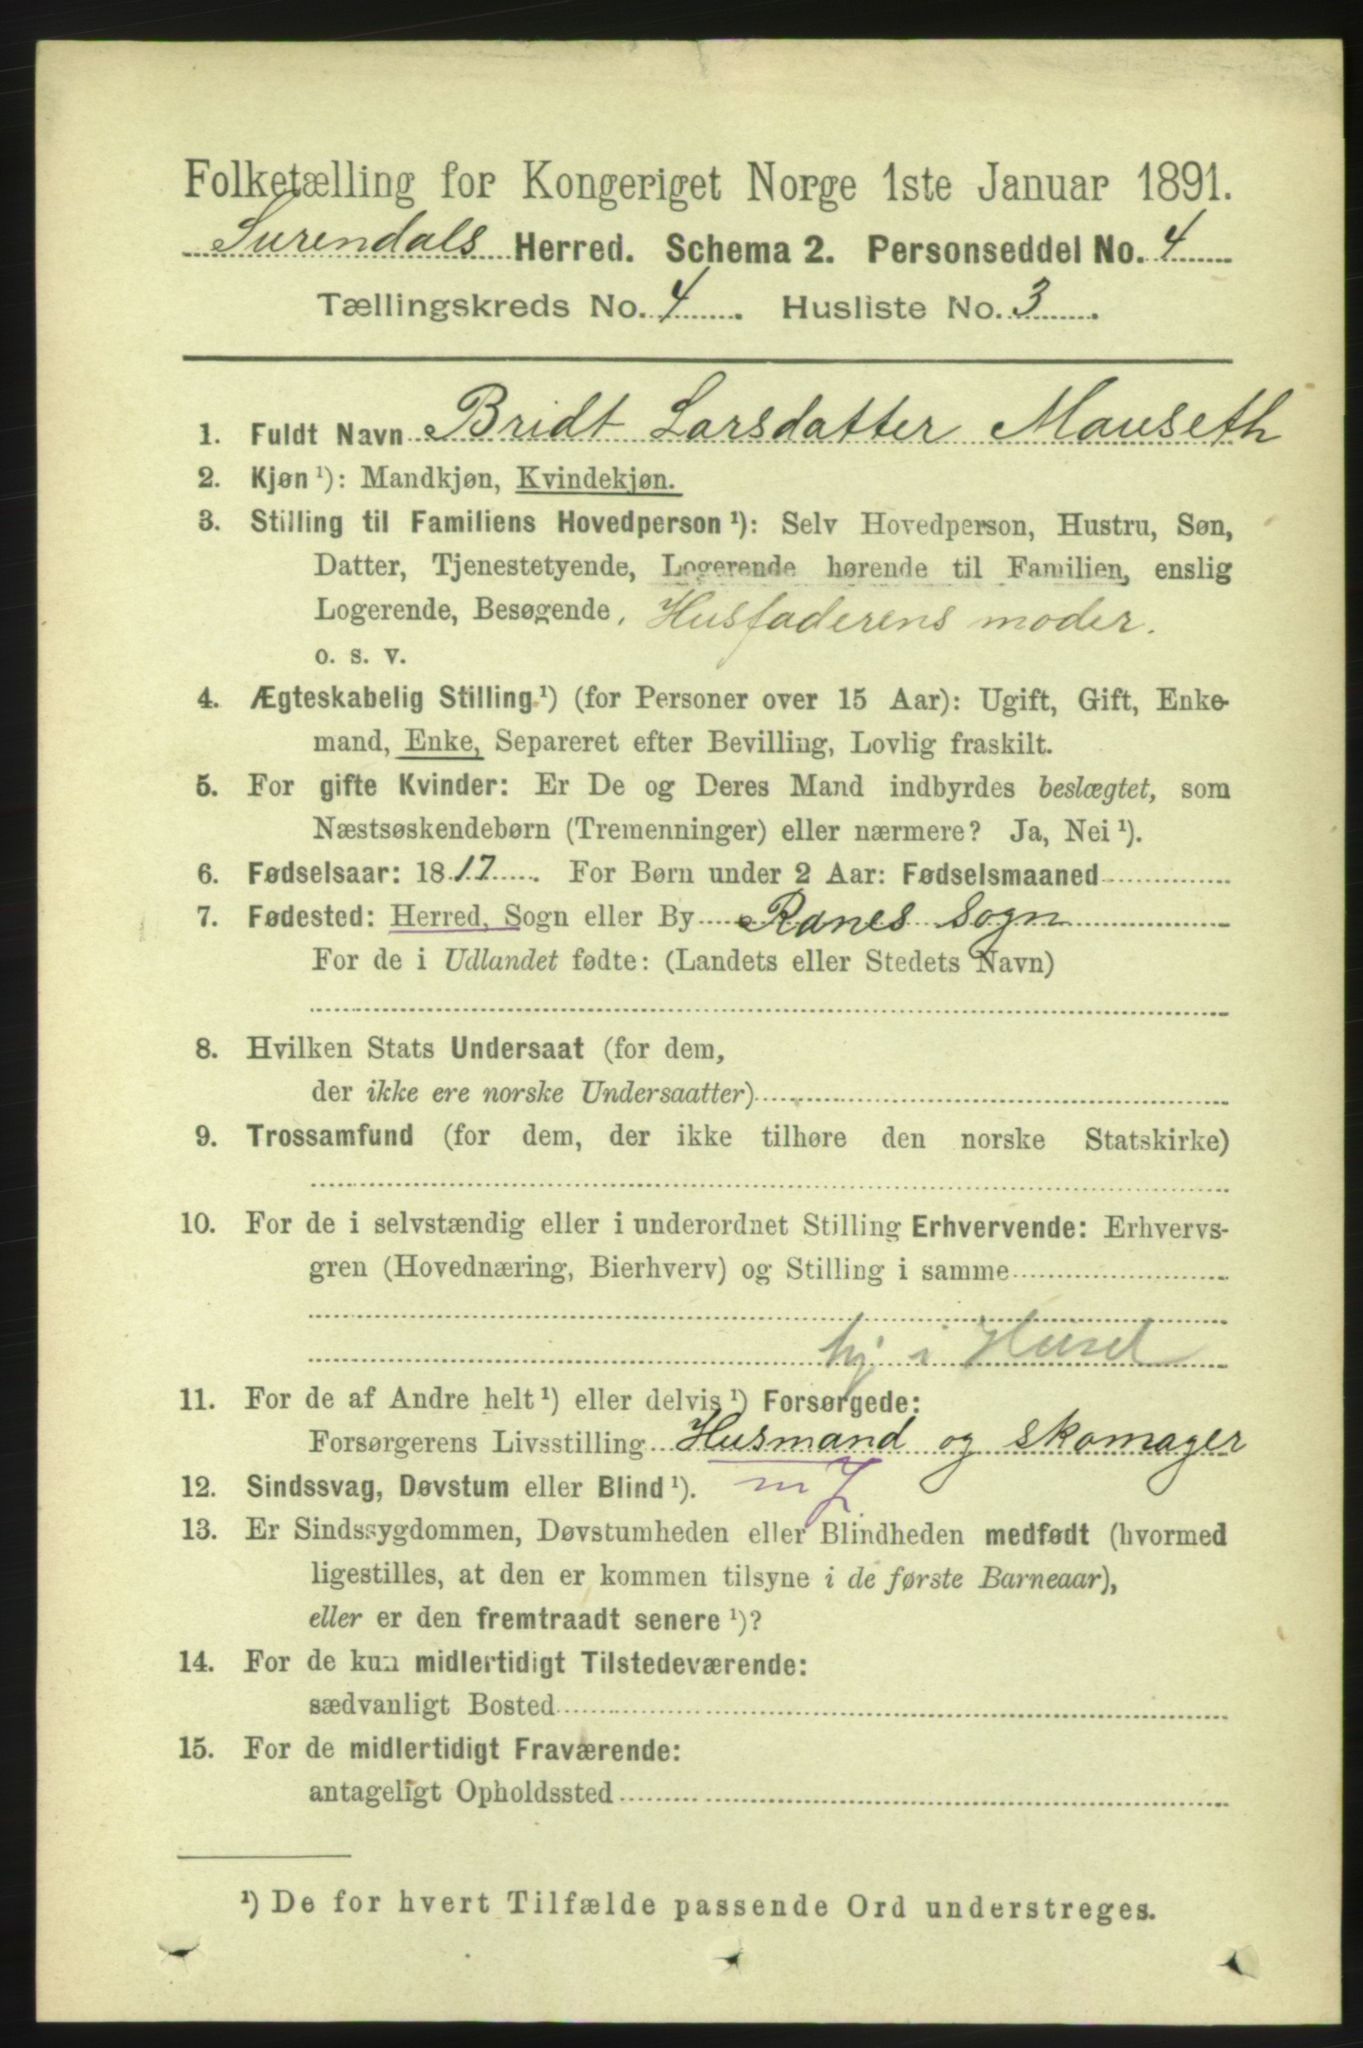 Folketælling for Kongeriget Norge 1ste Januar 1891.
Surendals Herred. Schema 2. Personseddel No. 4
Tællingskreds No. 4. Husliste No. 3.
1. Fuldt Navn Bridt Larsdatter Mauseth
2. Kjøn ¹): Mandkjøn, Kvindekjøn.
3. Stilling til Familiens Hovedperson ¹): Selv Hovedperson, Hustru, Søn,
Datter, Tjenestetyende, Logerende hørende til Familien, enslig
Logerende, Besøgende, Husfaderens moder.
o. s. v.
4. Ægteskabelig Stilling ¹) (for Personer over 15 Aar): Ugift, Gift, Enke-
mand, Enke, Separeret efter Bevilling, Lovlig fraskilt.
5. For gifte Kvinder: Er De og Deres Mand indbyrdes beslægtet, som
Næstsøskendebørn (Tremenninger) eller nærmere? Ja, Nei ¹).
6. Fødselsaar: 1817. For Børn under 2 Aar: Fødselsmaaned
7. Fødested: Herred, Sogn eller By Ranes Sogn
For de i Udlandet fødte: (Landets eller Stedets Navn)
8. Hvilken Stats Undersaat (for dem,
der ikke ere norske Undersaatter)
9. Trossamfund (for dem, der ikke tilhøre den norske Statskirke)
10. For de i selvstændig eller i underordnet Stilling Erhvervende: Erhvervs-
gren (Hovednæring, Bierhverv) og Stilling i samme
hj i Huset
11. For de af Andre helt ¹) eller delvis ¹) Forsørgede:
Forsørgerens Livsstilling Husmand og skomager
12. Sindssvag, Døvstum eller Blind ¹). m J
13. Er Sindssygdommen, Døvstumheden eller Blindheden medfødt (hvormed
ligestilles, at den er kommen tilsyne i de første Barneaar),
eller er den fremtraadt senere ¹)?
14. For de kun midlertidigt Tilstedeværende:
sædvanligt Bosted
15. For de midlertidigt Fraværende:
antageligt Opholdssted
¹) De for hvert Tilfælde passende Ord understreges.